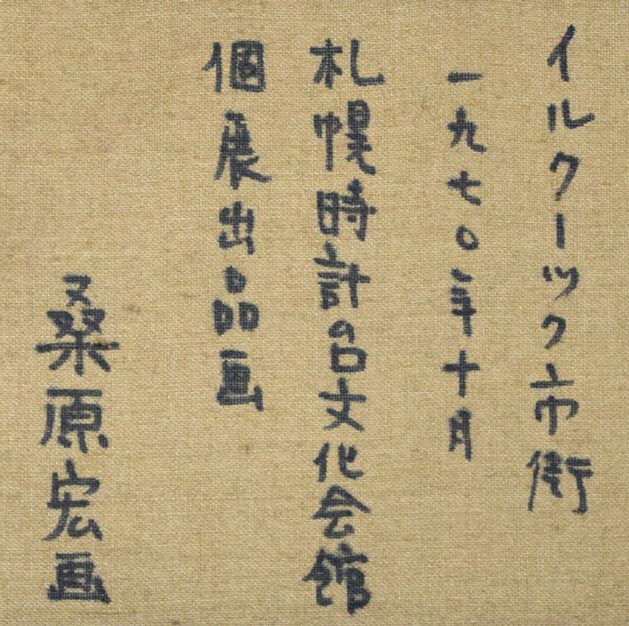 イルクーツク市街
一九七〇年十月
札幌時計台文化会館
個展出品画
桑原宏画